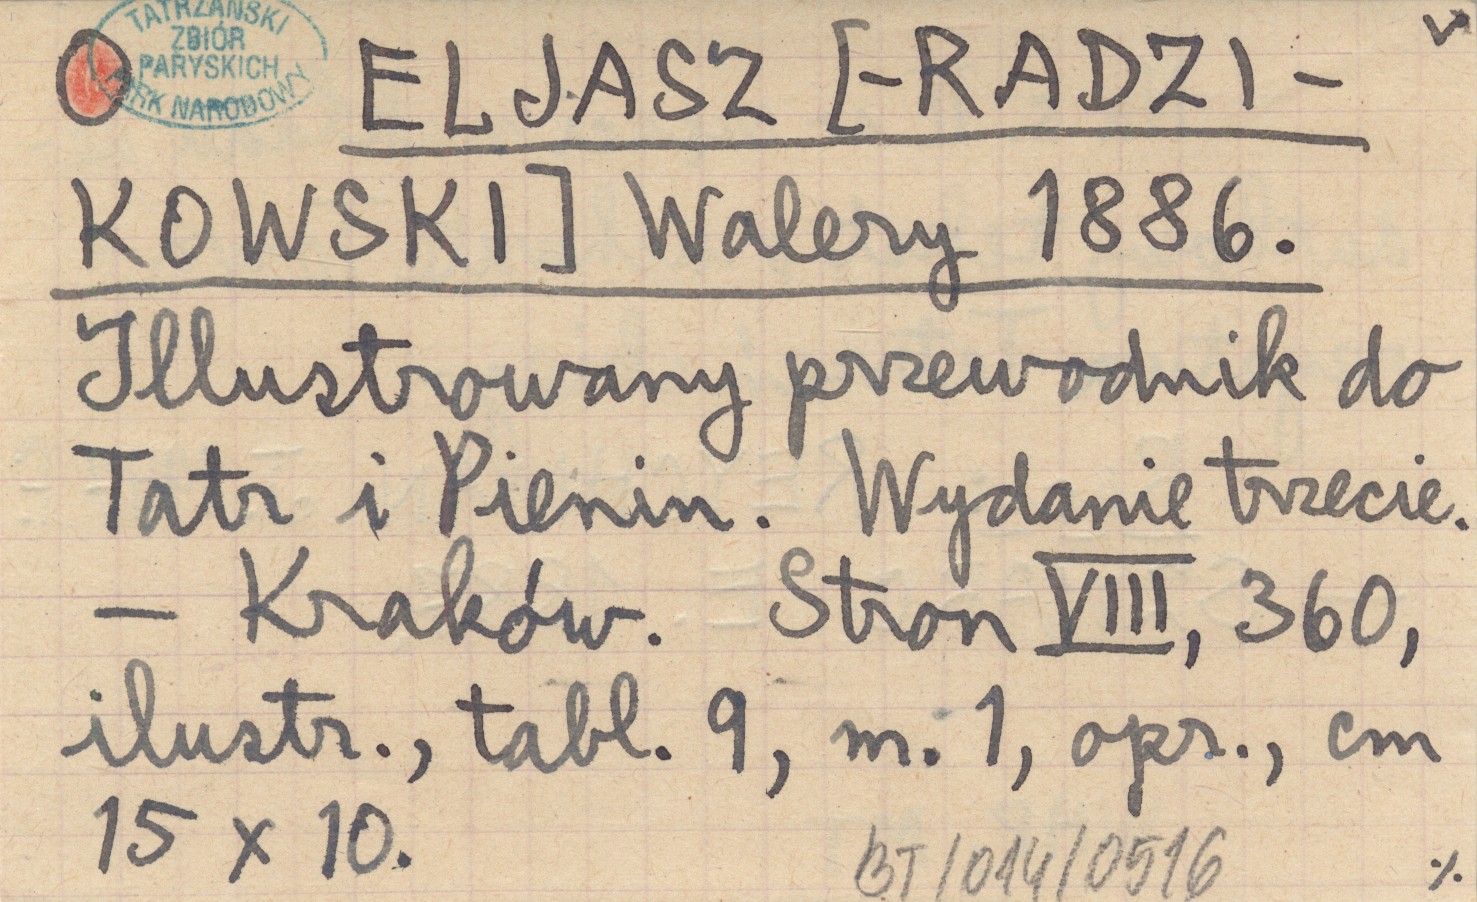 TATRZAŃSKI
ZBIÓR
PARYSKICH
PARK NARODOWY
v
ELJASZ [-RADZI-
KOWSKI] Walery 1886.
Illustrowany przewodnik do
Tatr i Pienin. Wydanie trzecie.
— Kraków. Stron VIII, 360,
ilustr., tabl. 9, m. 1, opr., cm
15 x 10.
BT/014/0516
./.